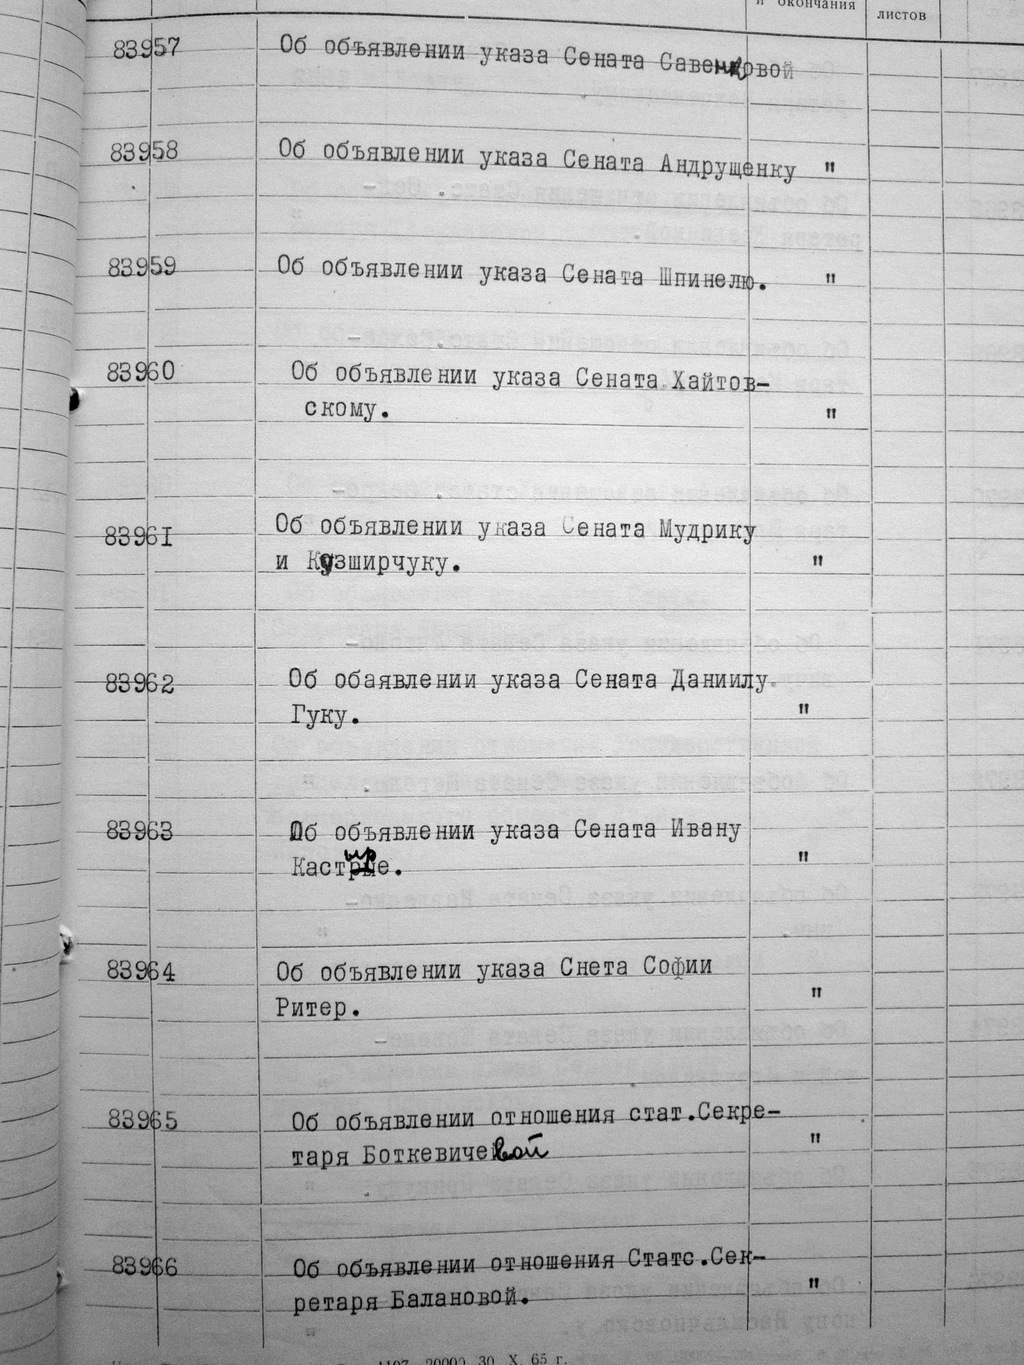 и окончания
листов
83957 Об объявлении указа Сената Савенковой
83958 Об объявлении указа Сената Андрущенку "
83959 Об объявлении указа Сената Шпинелю. "
83960 Об объявлении указа Сената Хайтов-
скому. "
83961 Об объявлении указа Сената Мудрику
и Козширчуку. "
83962 Об обаявлении указа Сената Даниилу.
Гуку. "
83963 Об объявлении указа Сената Ивану
Кастыре. "
83964 Об объявлении указа Снета Софии
Ритер. "
83965 Об объявлении отношения стат.Секре-
таря Боткевичевой "
83966 Об объявлении отношения Статс.Сек-
ретаря Балановой. "
20000 30. X. 65 г.